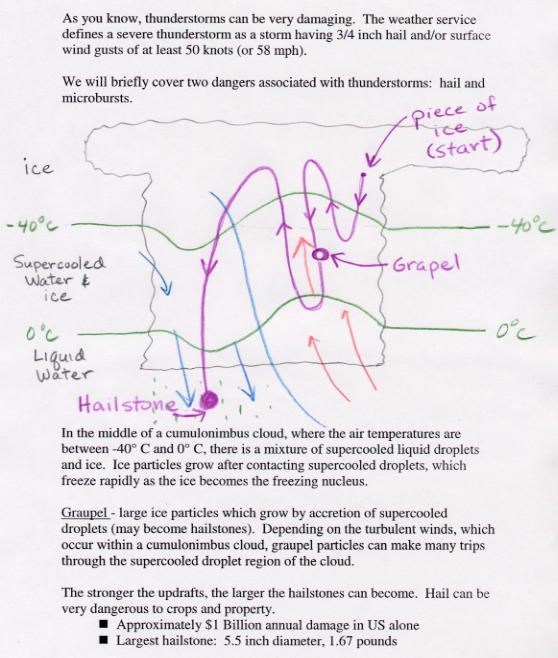 As you know, thunderstorms can be very damaging.  The weather service
defines a severe thunderstorm as a storm having 3/4 inch hail and/or surface
wind gusts of at least 50 knots (or 58 mph).
We will briefly cover two dangers associated with thunderstorms:  hail and
microbursts.
piece of
ice
(start)
ice
-40°C
-40°C
Supercooled
Water &
ice
Grapel
0°C
0°C
Liquid
Water
Hailstone
In the middle of a cumulonimbus cloud, where the air temperatures are
between -40° C and 0° C, there is a mixture of supercooled liquid droplets
and ice.  Ice particles grow after contacting supercooled droplets, which
freeze rapidly as the ice becomes the freezing nucleus.
Graupel - large ice particles which grow by accretion of supercooled
droplets (may become hailstones).  Depending on the turbulent winds, which
occur within a cumulonimbus cloud, graupel particles can make many trips
through the supercooled droplet region of the cloud.
The stronger the updrafts, the larger the hailstones can become.  Hail can be
very dangerous to crops and property.
■ Approximately $1 Billion annual damage in US alone
■ Largest hailstone:  5.5 inch diameter, 1.67 pounds